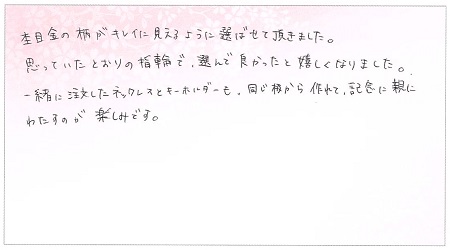 杢目金の柄がキレイに見えるように選ばせて頂きました。
思っていたとおりの指輪で、選んで良かったと嬉しくなりました。
一緒に注文したネックレスとキーホルダーも、同じ板から作れて、記念に親に
わたすのが楽しみです。